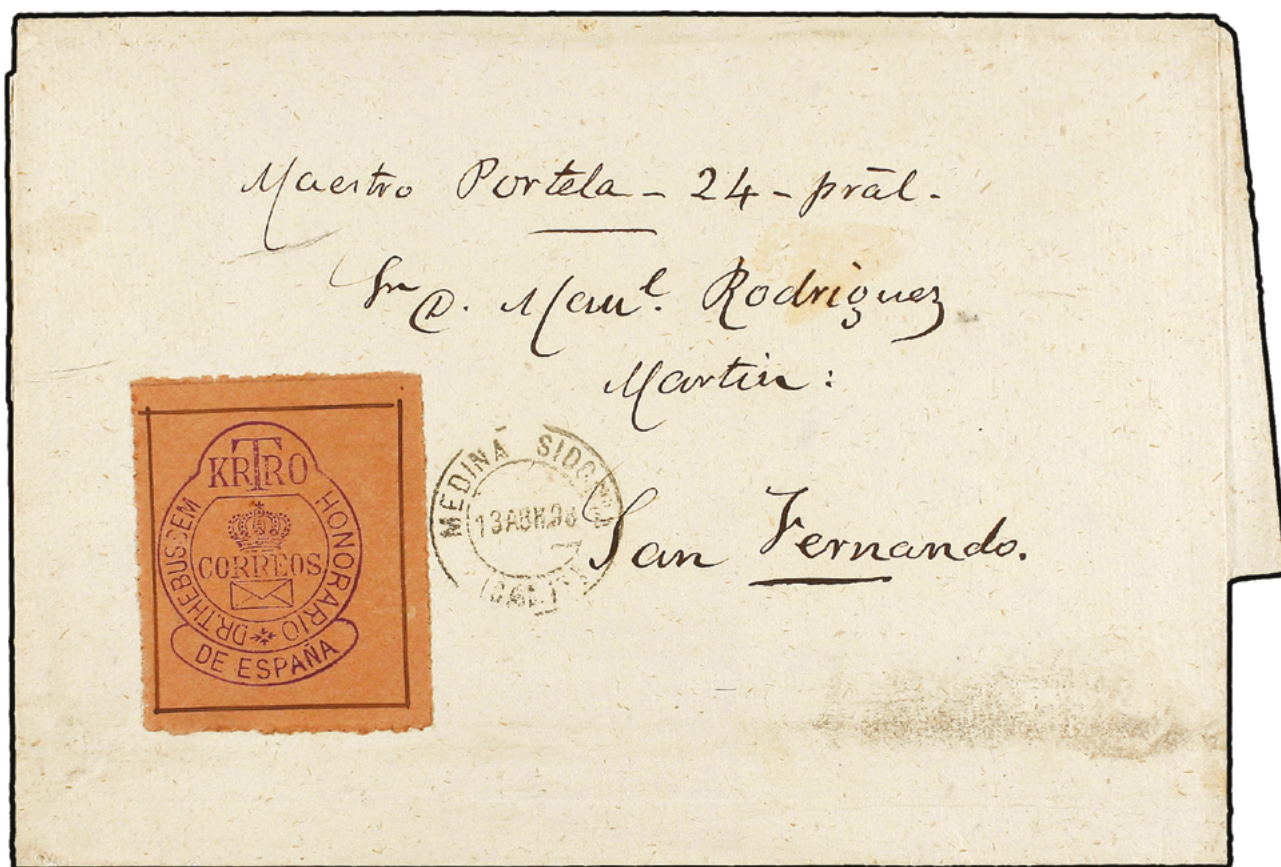 Maestro Portela - 24 - prāl.
Sr D. Manl. Rodriguez
Martin:
San Fernando.
KRTRO
HONORARIO
DR. THEBUSSEM
CORREOS
DE ESPAÑA
MEDINA SIDONIA
13 ABR 98
(CADIZ)